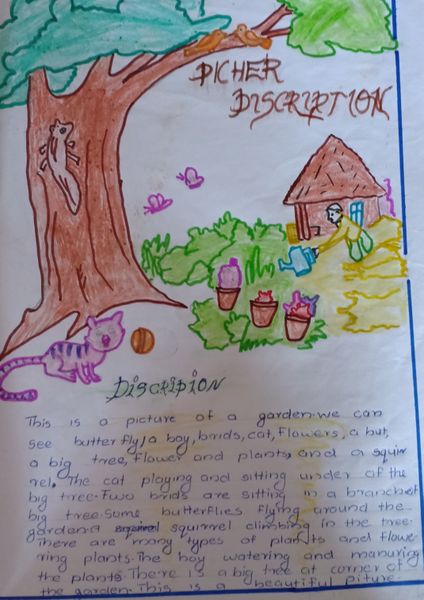 DICHER
DISCRIPTION
DISCRIPTION
This is a picture of a garden. we can
see butterfly, a boy, brids, cat, Flowers, a hut,
a big tree, flower and plants, and a squir
rel. The cat playing and sitting under of the
big tree. Two brids are sitting in a branch of
big tree. Some butterflies flying around the
garden. A squirrel climbing in the tree.
There are many types of plants and flowe
ring plants. The boy watering and manuring
the plants. There is a big tree at corner of
the garden. This is a beautiful piture.